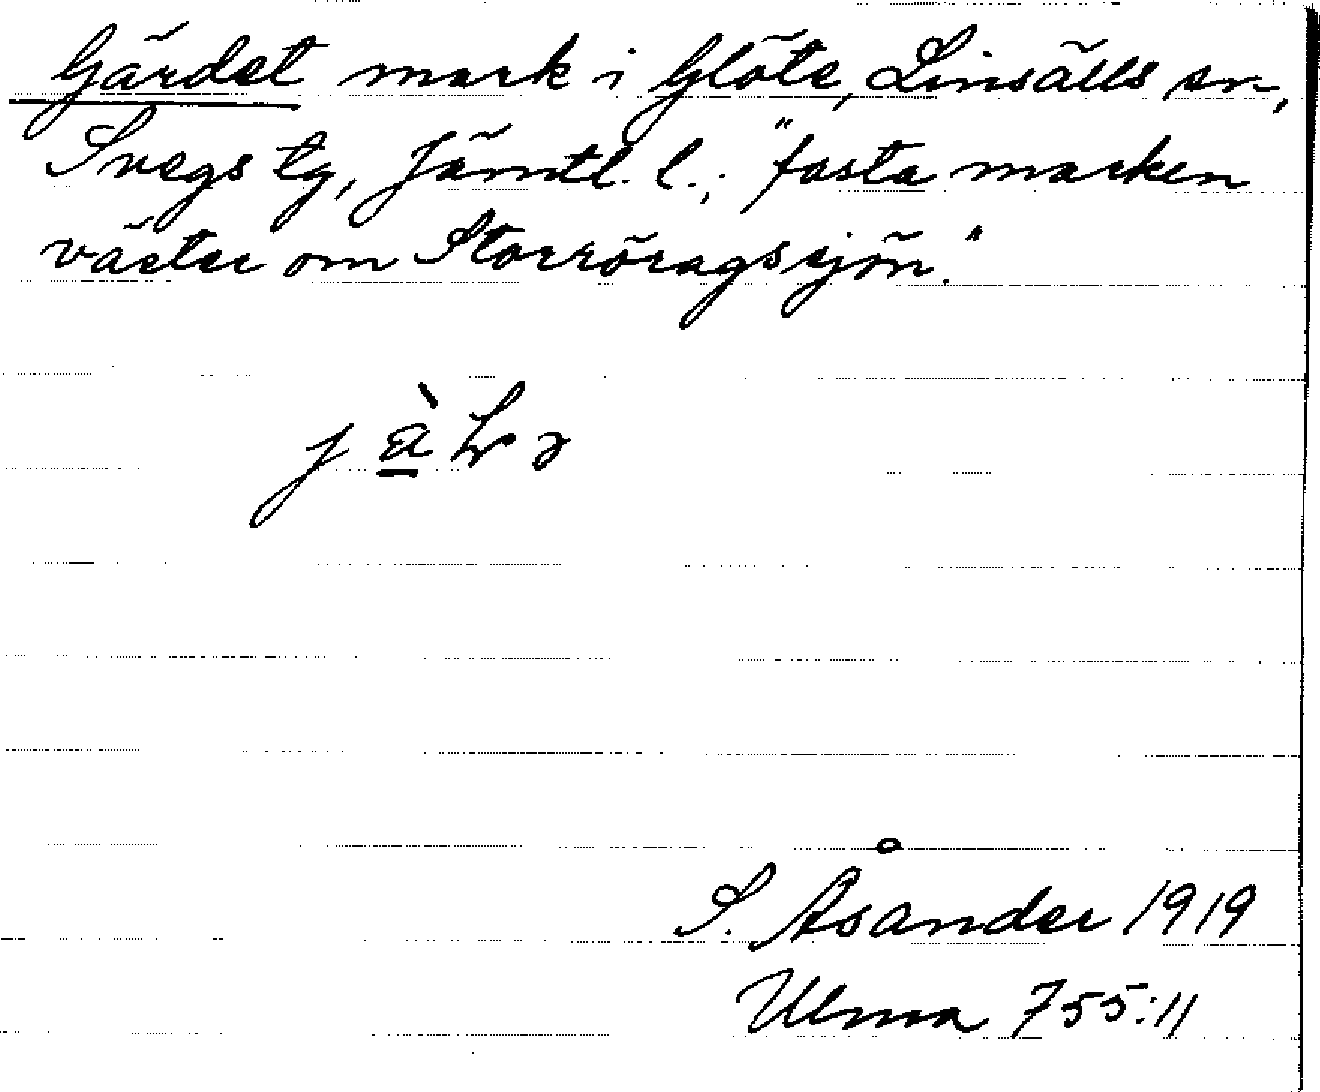 Gärdet mark i Glöte, Linsälls sn,
Svegs tg, Jämtl. l.; "fasta marken
väster om Storröragssjön."
S. Åsander 1919
Ulma 755:11